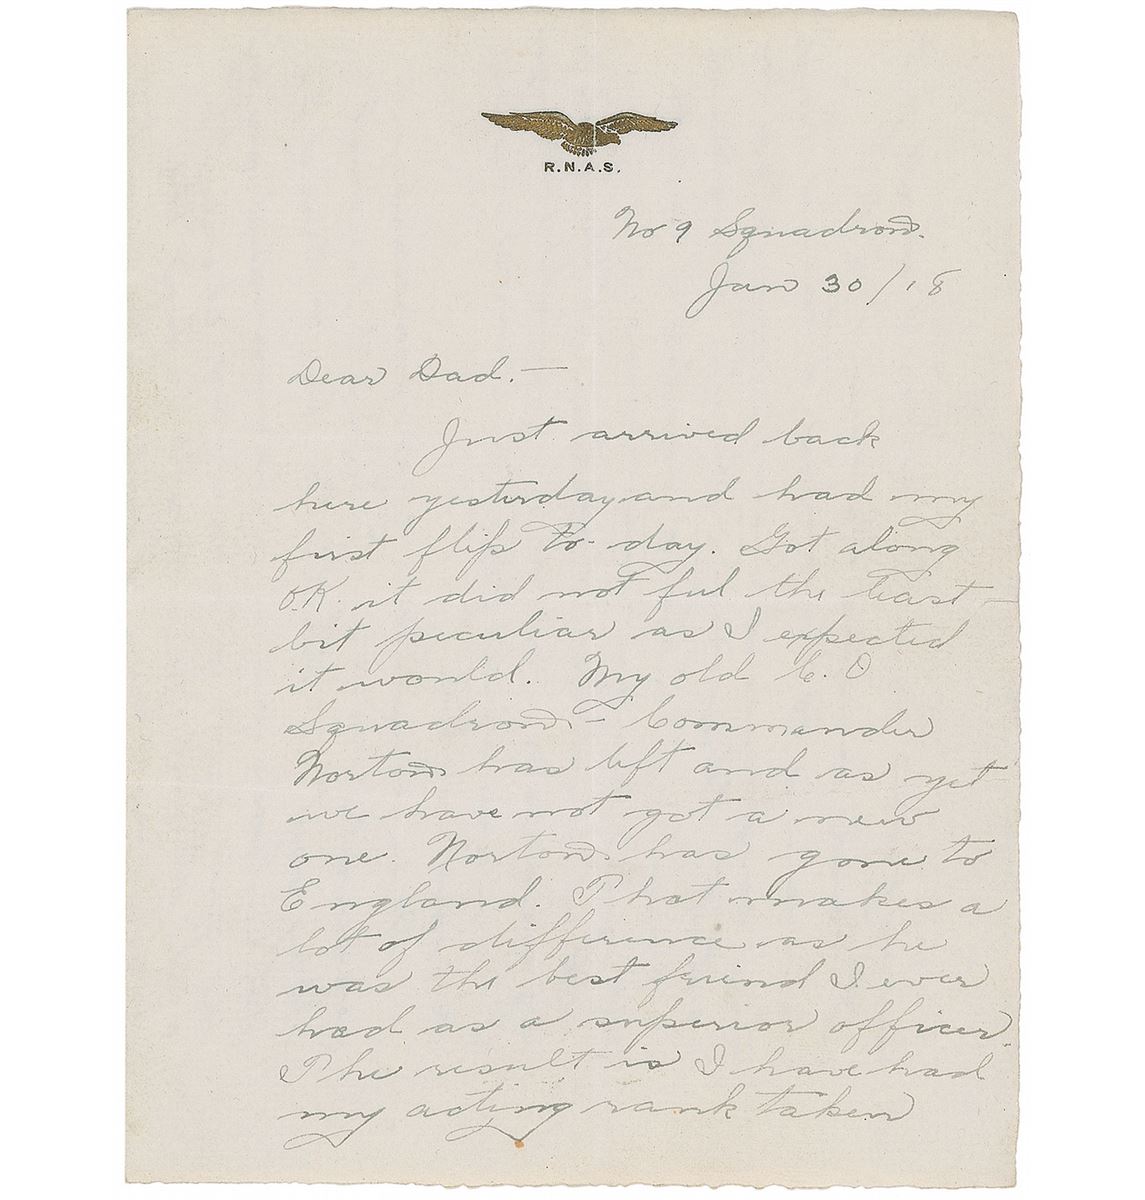 R.N.A.S.
No 9 Squadron.
Jan 30/18
Dear Dad. —
Just arrived back
here yesterday and had my
first flip to-day. Got along
O.K. it did not feel the least
bit peculiar as I expected
it would. My old C.O
Squadron - Commander
Norton has left and as yet
we have not got a new
one. Norton has gone to
England. That makes a
lot of difference as he
was the best friend I ever
had as a superior officer.
The result is I have had
my acting rank taken